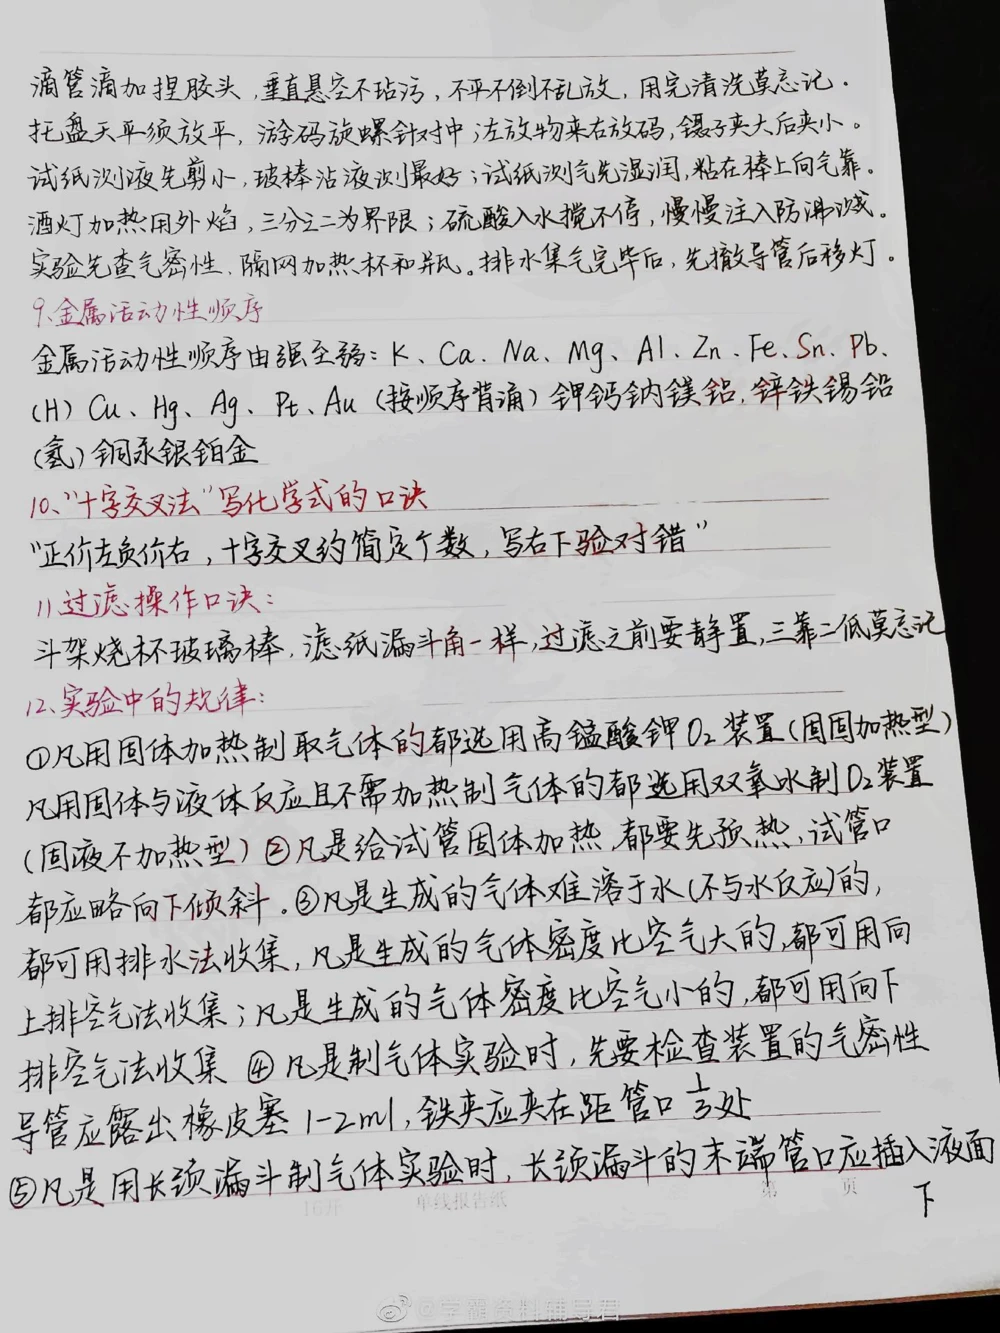 滴管滴加捏胶头,垂直悬空不玷污,不平不倒不乱放,用完清洗莫忘记.
托盘天平须放平,游码旋螺针对中;左放物来右放码,镊子夹大后夹小。
试纸测液先剪小,玻棒沾液测最好;试纸测气先湿润,粘在棒上向气靠。
酒灯加热用外焰,三分之二为界限;硫酸入水搅不停,慢慢注入防沸溅。
实验先查气密性、隔网加热杯和瓶。排水集气完毕后,先撤导管后移灯。
9、金属活动性顺序
金属活动性顺序由强至弱:K、Ca、Na、Mg、Al、Zn、Fe、Sn、Pb、
(H)Cu、Hg、Ag、Pt、Au(按顺序背诵)钾钙钠镁铝,锌铁锡铅
(氢)铜汞银铂金
10、“十字交叉法”写化学式的口诀
“正价左负价右,十字交叉约简定个数,写右下验对错”
11过滤操作口诀:
斗架烧杯玻璃棒,滤纸漏斗角一样,过滤之前要静置,三靠二低莫忘记
12、实验中的规律:
①凡用固体加热制取气体的都选用高锰酸钾O₂装置(固固加热型)
凡用固体与液体反应且不需加热制气体的都选用双氧水制O₂装置
(固液不加热型)②凡是给试管固体加热,都要先预热,试管口
都应略向下倾斜.③凡是生成的气体难溶于水(不与水反应)的,
都可用排水法收集,凡是生成的气体密度比空气大的,都可用向
上排空气法收集;凡是生成的气体密度比空气小的,都可用向下
排空气法收集 ④凡是制气体实验时,先要检查装置的气密性
导管应露出橡皮塞1-2ml,铁夹应夹在距管口1/3处
⑤凡是用长颈漏斗制气体实验时,长颈漏斗的末端管口应插入液面
下
16开 单线报告纸 第 页
@学霸资料辅导君